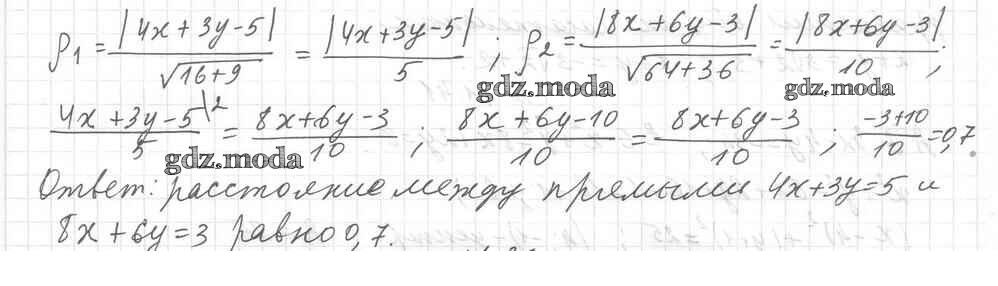 ρ₁ = |4x + 3y - 5| / √(16+9) = |4x+3y-5| / 5 ; ρ₂ = |8x+6y-3| / √(64+36) = |8x+6y-3| / 10 ;
gdz.moda gdz.moda
(4x + 3y - 5)\2 / 5 = (8x+6y-3) / 10 ; (8x + 6y - 10) / 10 = (8x+6y-3) / 10 ; (-3+10) / 10 = 0,7.
gdz.moda
Ответ: расстояние между прямыми 4x+3y=5 и
8x+6y=3 равно 0,7.